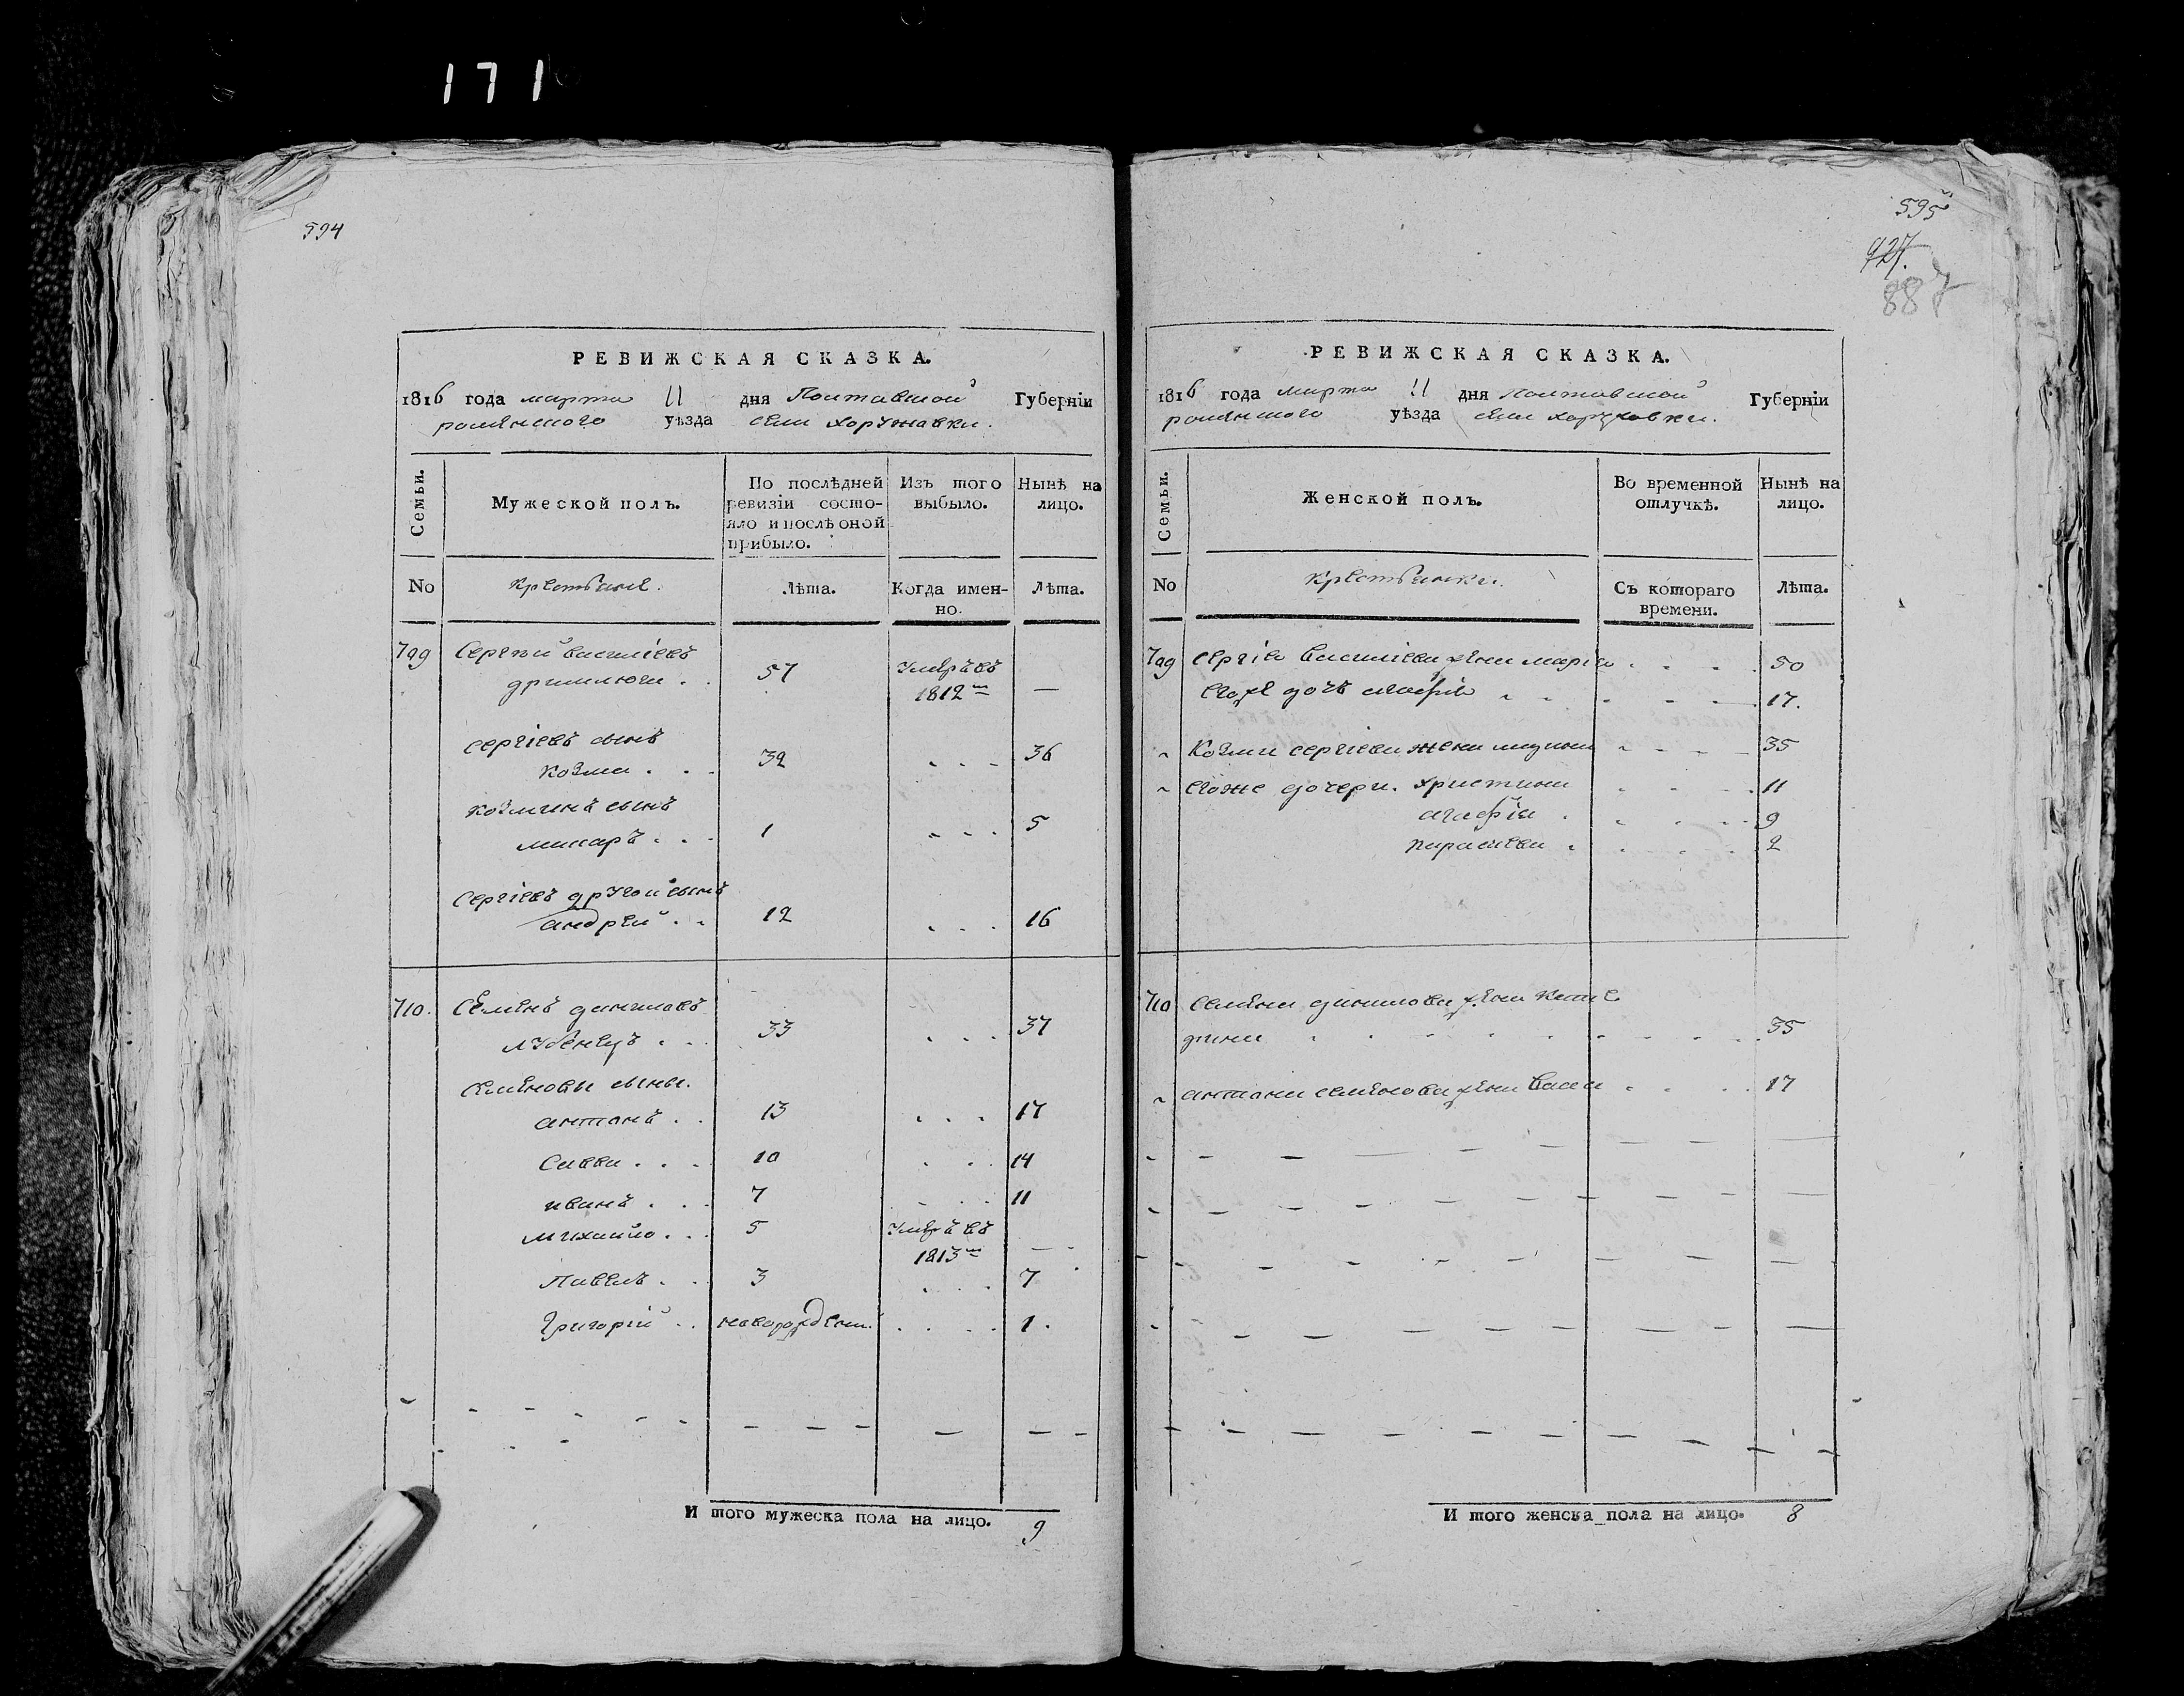 171
594
РЕВИЖСКАЯ СКАЗКА.
1816 года марта 11 дня Полтавской Губерніи
роменского уѣзда села хоружавки.
Семьи.
Мужеской полъ.
По послѣдней ревизіи состо-
яло и послѣ оной
прибыло.
Изъ того
выбыло.
Нынѣ на
лицо.
No
крестьяне.
Лѣта.
Когда имен-
но.
Лѣта.
709 Сергѣй василіевъ
57 Умеръ въ
1812 —
Сергіевъ сынъ
козма . . . 32 . . . 36
козминъ сынъ
макаръ . . . 1 . . . 5
Сергіевъ другой сынъ
андрей . . 12 . . . 16
710. Семенъ даниловъ
лубенецъ . . . 33 . . . 37
Семеновы сыны.
антонъ . . 13 . . . 17
Савва . . . 10 . . . 14
иванъ . . . 7 . . . 11
михайло . . . 5 Умеръ въ
1813 —
Павелъ . . 3 . . . 7
Григорій . . новорожден. . . . . 1.
И того мужеска пола на лицо. 9
595
927.
887
РЕВИЖСКАЯ СКАЗКА.
1816 года марта 11 дня Полтавской Губерніи
роменского уѣзда села хоружовки.
Семьи.
Женской полъ.
Во временной
отлучкѣ.
Нынѣ на
лицо.
No
крестьянки.
Съ котораго
времени.
Лѣта.
709 Сергія василіева жена марія . . . . 50
Егоже дочь агафія . . . . . 17.
козми сергіева жена . . . . 35
Егоже дочери. христина . . . . 11
агафія . . . . 9
параскева . . . . . 2
710 Семена данилова жена
35
антона семенова жена васса . . . . 17
И того женска пола на лицо. 8